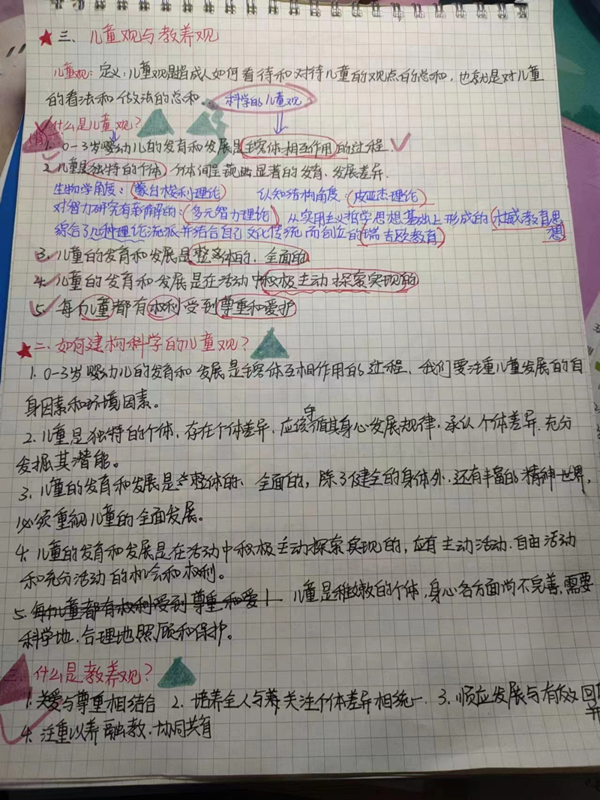 三、儿童观与教养观
儿童观:定义:儿童观是指成人如何看待和对待儿童的观点的总和,也就是对儿童
的看法和做法的总和。 科学的儿童观
一、什么是儿童观?
1. 0-3岁婴幼儿的发育和发展是主客体相互作用的过程
2. 儿童是独特的个体,个体间呈现出显著的发育.发展差异.
生物学角度:(蒙台梭利理论) 认知结构角度:(皮亚杰理论)
对智力研究有新解的:(多元智力理论) 从实用主义哲学思想基础上形成的(杜威教育思想)
综合多种理论流派并结合自己文化传统而创立的(瑞吉欧教育)
3. 儿童的发育和发展是整体的、全面的
4. 儿童的发育和发展是在活动中积极主动探索实现的
5. 每个儿童都有权利受到尊重和爱护
二、如何建构科学的儿童观?
1. 0-3岁婴幼儿的发育和发展是主客体互相作用的过程,我们要注重儿童发展的自
身因素和环境因素。
2. 儿童是独特的个体,存在个体差异,应该遵循其身心发展规律,承认个体差异.充分
发掘其潜能。
3. 儿童的发育和发展是整体的、全面的,除了健全的身体外,还有丰富的精神世界,
必须重视儿童的全面发展。
4. 儿童的发育和发展是在活动中积极主动探索实现的,应有主动活动.自由活动
和充分活动的机会和权利。
5. 每个儿童都有权利受到尊重和爱 儿童是稚嫩的个体,身心各方面尚不完善,需要
科学地.合理地照顾和保护。
三、什么是教养观?
1. 关爱与尊重相结合 2. 培养全人与关注个体差异相统一 3. 顺应发展与有效回
4. 注重以养融教.协同共育